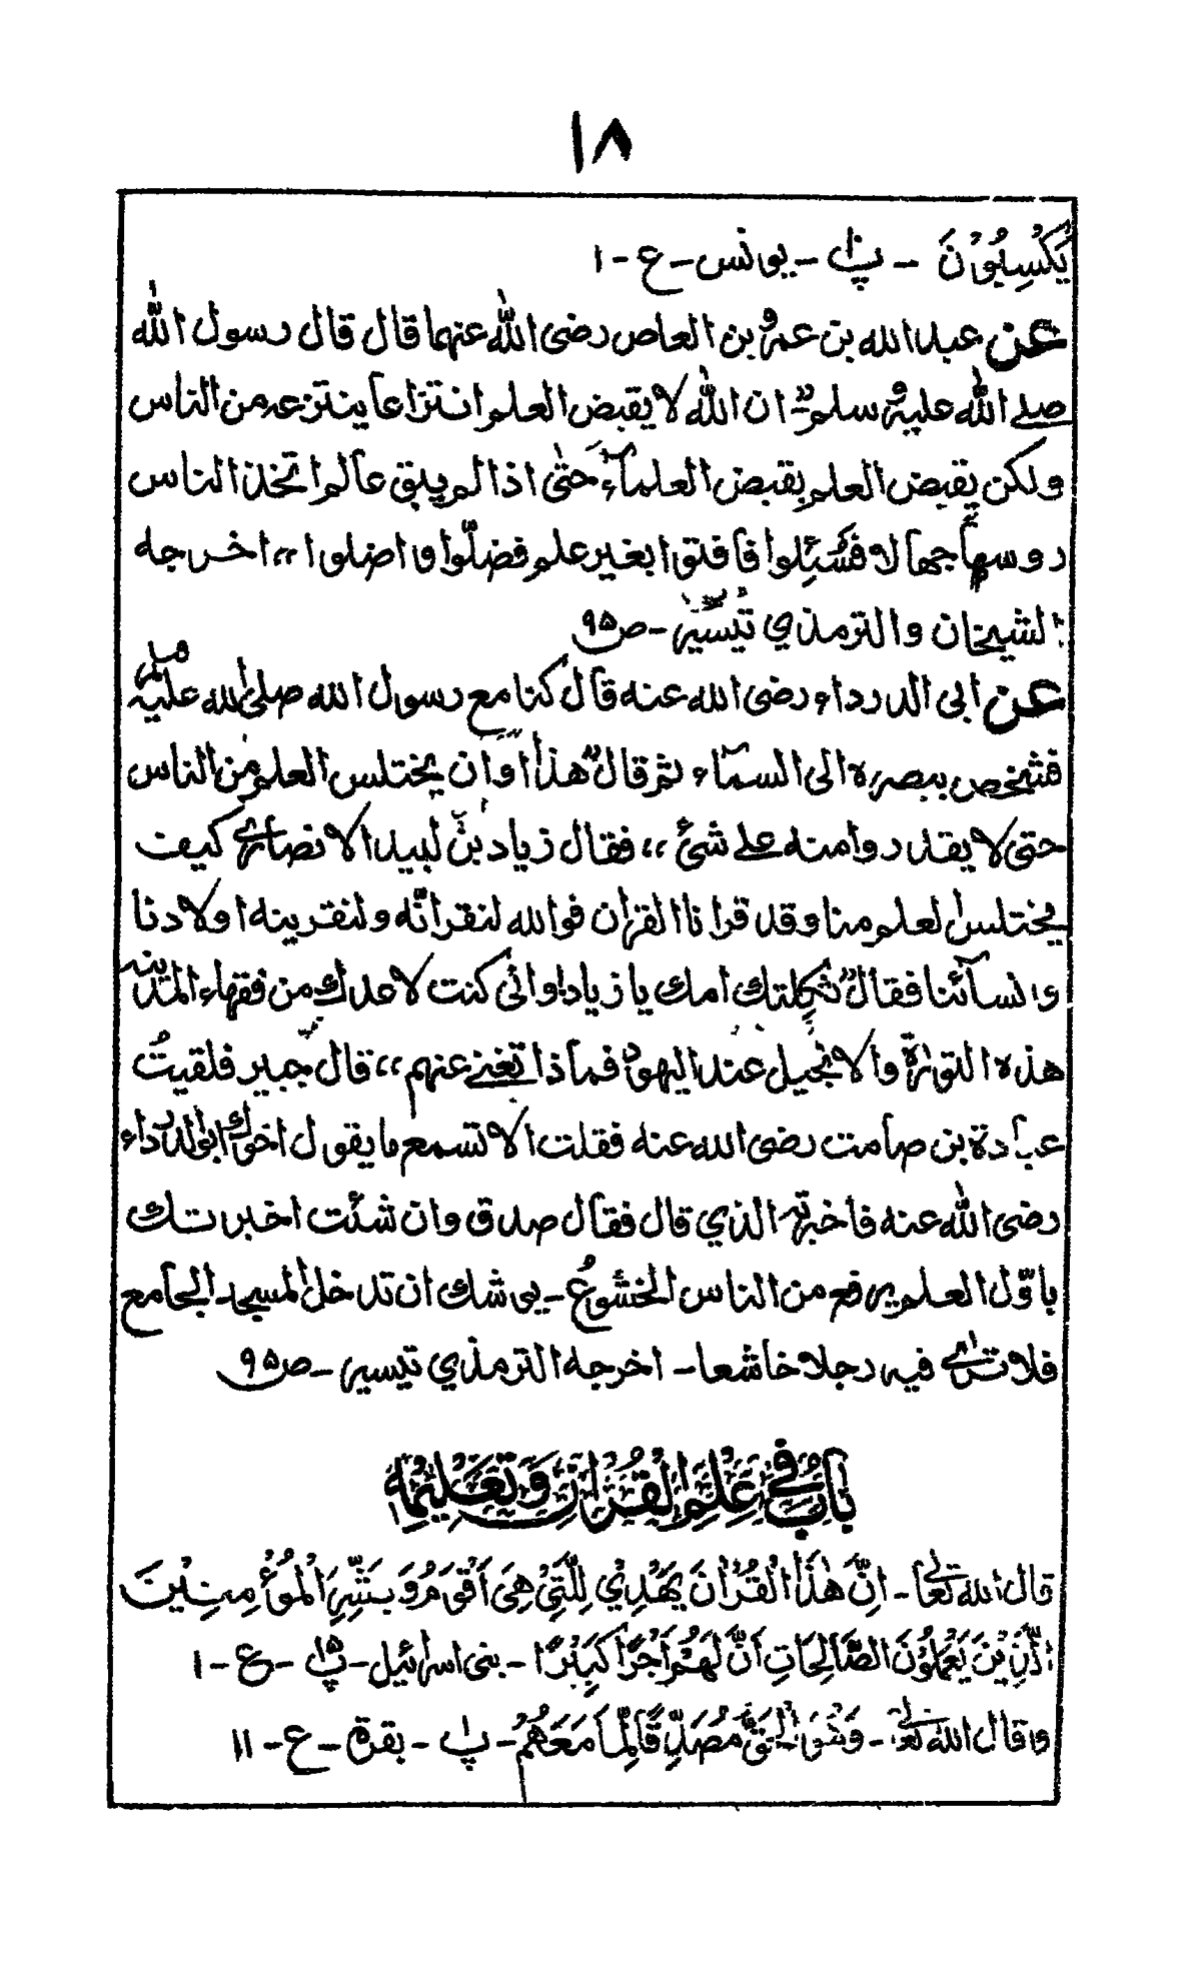 ١٨
يَكْسِبُوْنَ - پ١١ - يونس - ع - ١
عن عبد الله بن عمرو بن العاص رضى الله عنهما قال قال رسول الله
صلے الله عليه وسلم ان الله لا يقبض العلم انتزاعا ينتزعه من الناس
ولكن يقبض العلم بقبض العلمآء حتى اذا لم يبق عالما اتخذ الناس
روسهاً جهالا فَسُئِلوا فافتوا بغير علم فضلّوا واضلوا ،، اخرجه
الشيخان والترمذي تيسير - ص ٩٥
عن ابى الدرداء رضى الله عنه قال كنا مع رسول الله صلى الله عليه وسلم
فشخص ببصره الى السمآء ثم قال هذا اوان يختلس العلم من الناس
حتى لا يقدروا منه على شئ ،، فقال زياد بن لبيد الانصارى كيف
يختلس العلم منا وقد قرانا القران فوالله لنقرانّه ولنقرينه اولادنا
ونسآئنا فقال ثكلتك امك يا زياد اوانى كنت لاعدك من فقهاء المدينه
هذه التوراة والانجيل عند اليهود فماذا تغنے عنهم ،، قال جبير فلقيتُ
عبادة بن صامت رضى الله عنه فقلت الا تسمع ما يقول اخوك ابو الدرداء
رضى الله عنه فاخبرته الذي قال فقال صدق وان شئت اخبرتك
باوّل العلم يرفع من الناس الخشوعُ - يوشك ان تدخل المسجد الجامع
فلا ترى فيه رجلا خاشعا - اخرجه الترمذي تيسير - ص ٩٥
بَابٌ فِي عِلْمِ الْقُرْانِ وَتَعْلِيْمِهٖ
قال الله تعالٰى - اِنَّ هٰذَا الْقُرْاٰنَ يَهْدِيْ لِلَّتِيْ هِيَ اَقْوَمُ وَيُبَشِّرُ الْمُؤْمِنِيْنَ
الَّذِيْنَ يَعْمَلُوْنَ الصَّالِحَاتِ اَنَّ لَهُمْ اَجْرًا كَبِيْرًا - بنى اسرائيل - پ١٥ - ع - ١
وقال الله تعالى - وَهُوَ الْحَقُّ مُصَدِّقًا لِّمَا مَعَهُمْ - پ١ - بقرة - ع - ١١